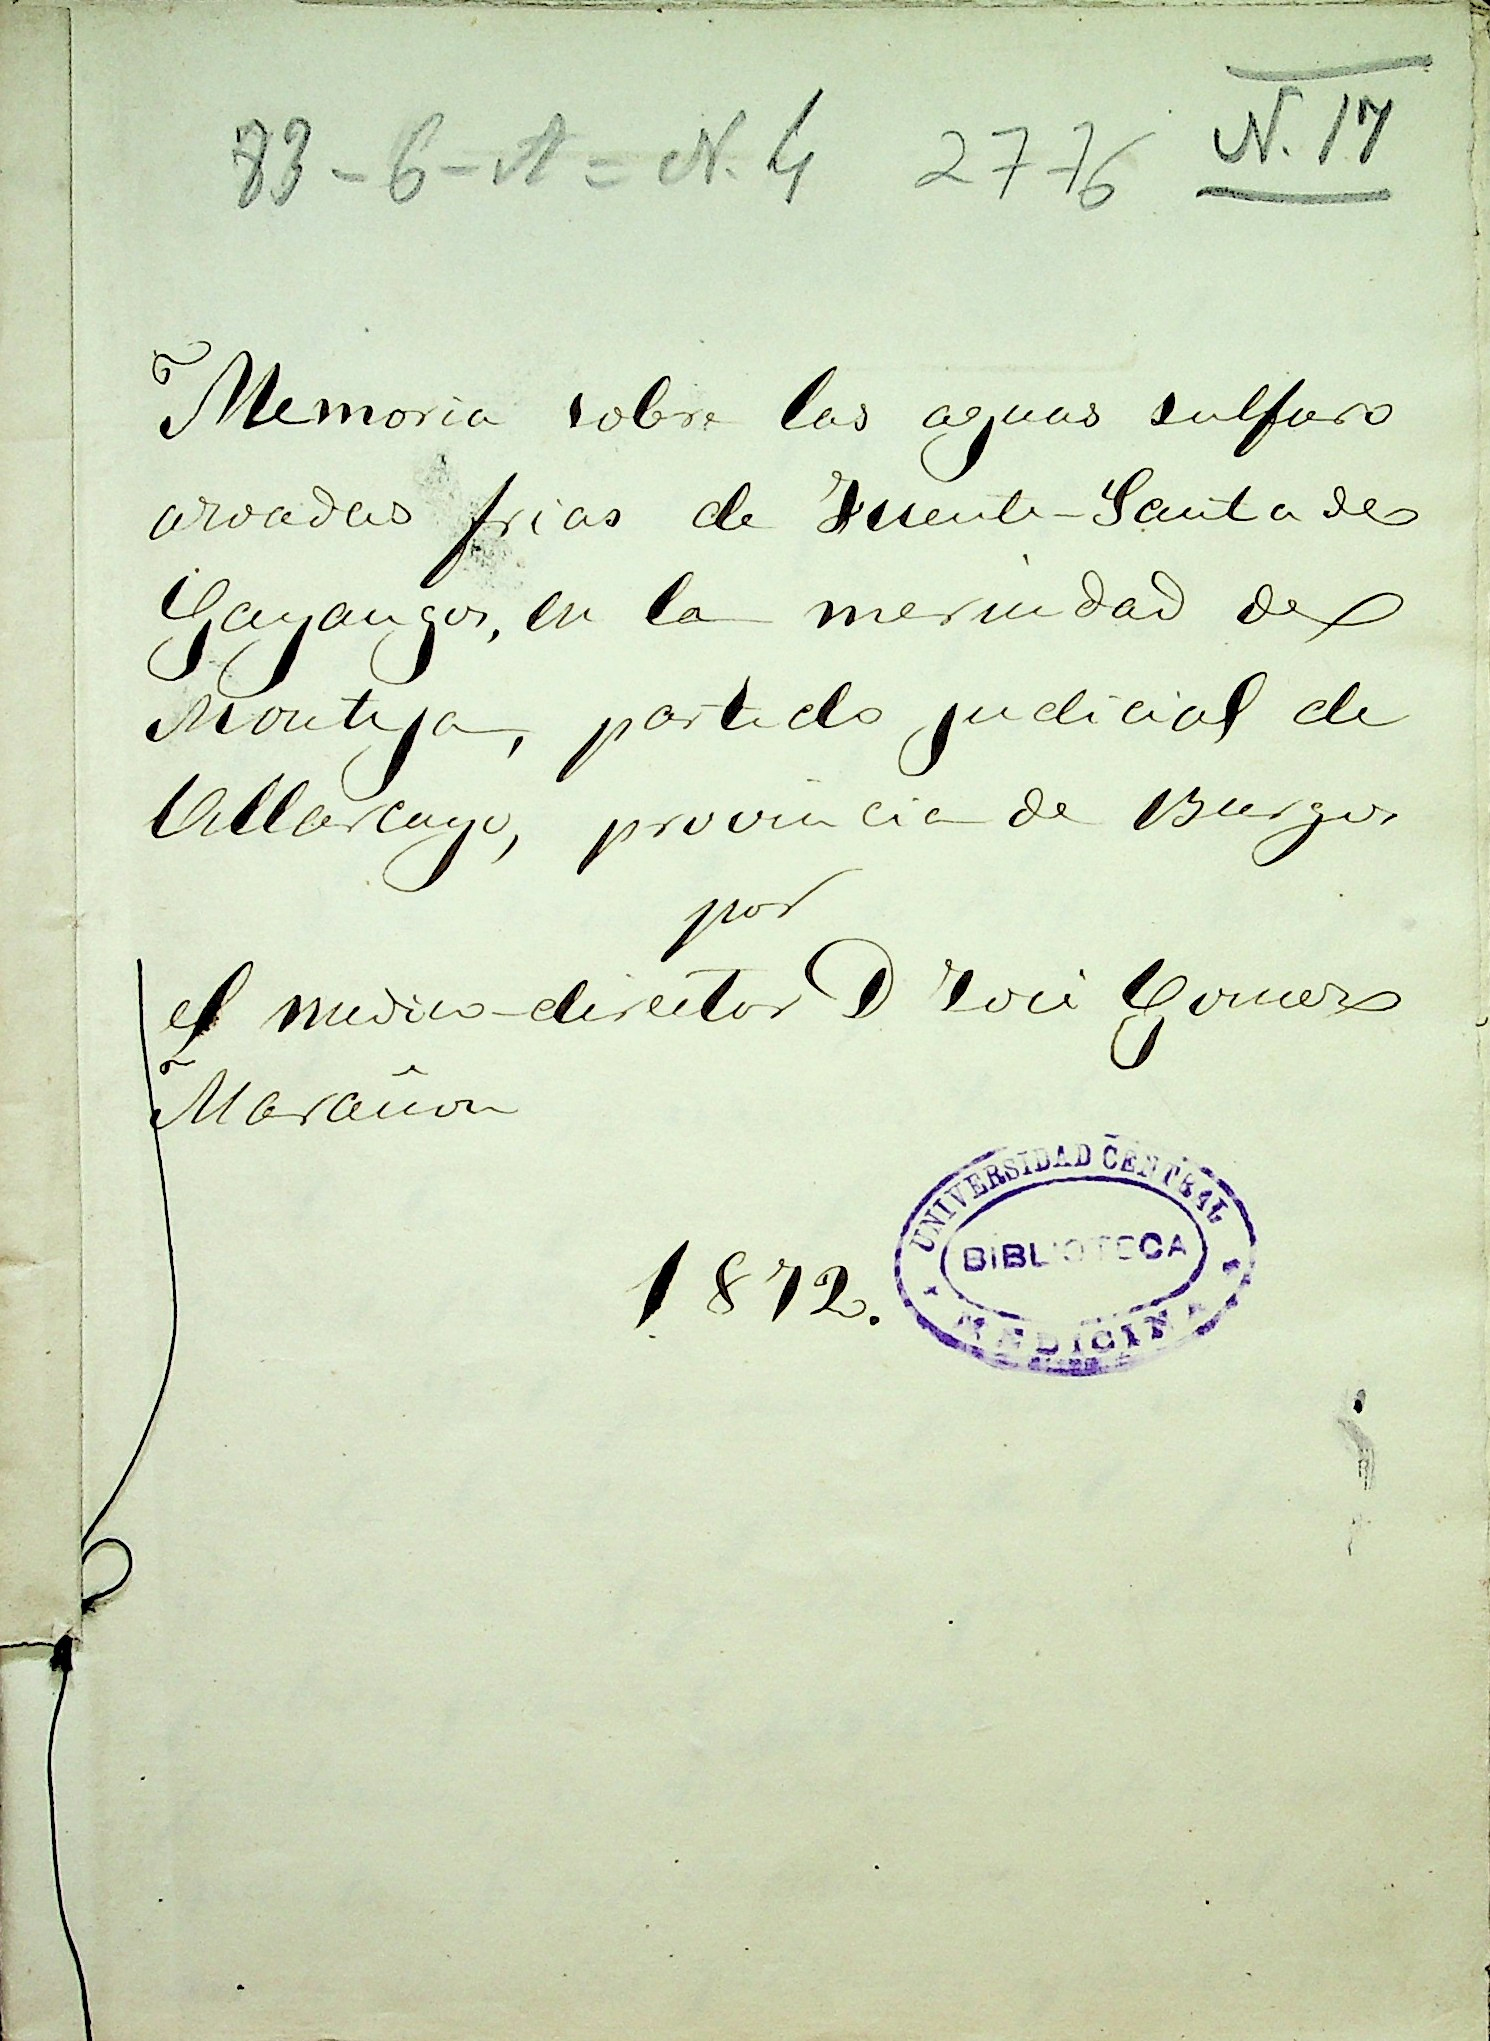 83-6-A=N. 4 2776 N. 17
Memoria sobre las aguas sulfuro
azoadas frias de Fuente-Santa de
Gayangos, en la merindad de
Montija, partido judicial de
Villarcayo, provincia de Burgos
por
el medico-director D José Gomez
Marañon
1872.
UNIVERSIDAD CENTRAL
BIBLIOTECA
MEDICINA